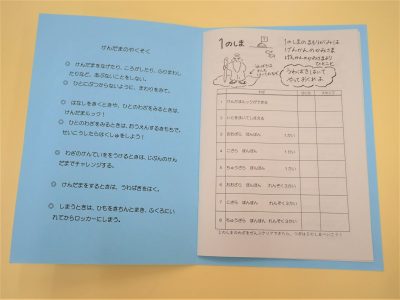 けんだまのやくそく
◎ けんだまをなげたり、ころがしたり、ふりまわし
たりなど、あぶないことをしない。
◎ ひとにぶつからないように、まわりをみて。
◎ はなしをきくときや、ひとのわざをみるときは、
けんだまルック!
◎ ひとのわざをみるときは、おうえんするきもちで、
せいこうしたらはくしゅをしよう!
◎ わざのけんていををうけるときは、じぶんのけん
だまでチャレンジする。
◎ けんだまをするときは、うわばきをはく。
◎ しまうときは、ひもをきちんとまき、ふくろにい
れてからロッカーにしまう。
1のしま
1のしまの
げんかんのかみさま
ひとこと
うわばきはいて
やっておくれよ
1 けんだまルックができる
2
3 おおざら ぽんぽん 1かい
4 こざら ぽんぽん 1かい
5 ちゅうざら ぽんぽん 1かい
6 おおざら ぽんぽん れんぞく3かい
7 こざら ぽんぽん れんぞく3かい
8 ちゅうざら ぽんぽん れんぞく3かい